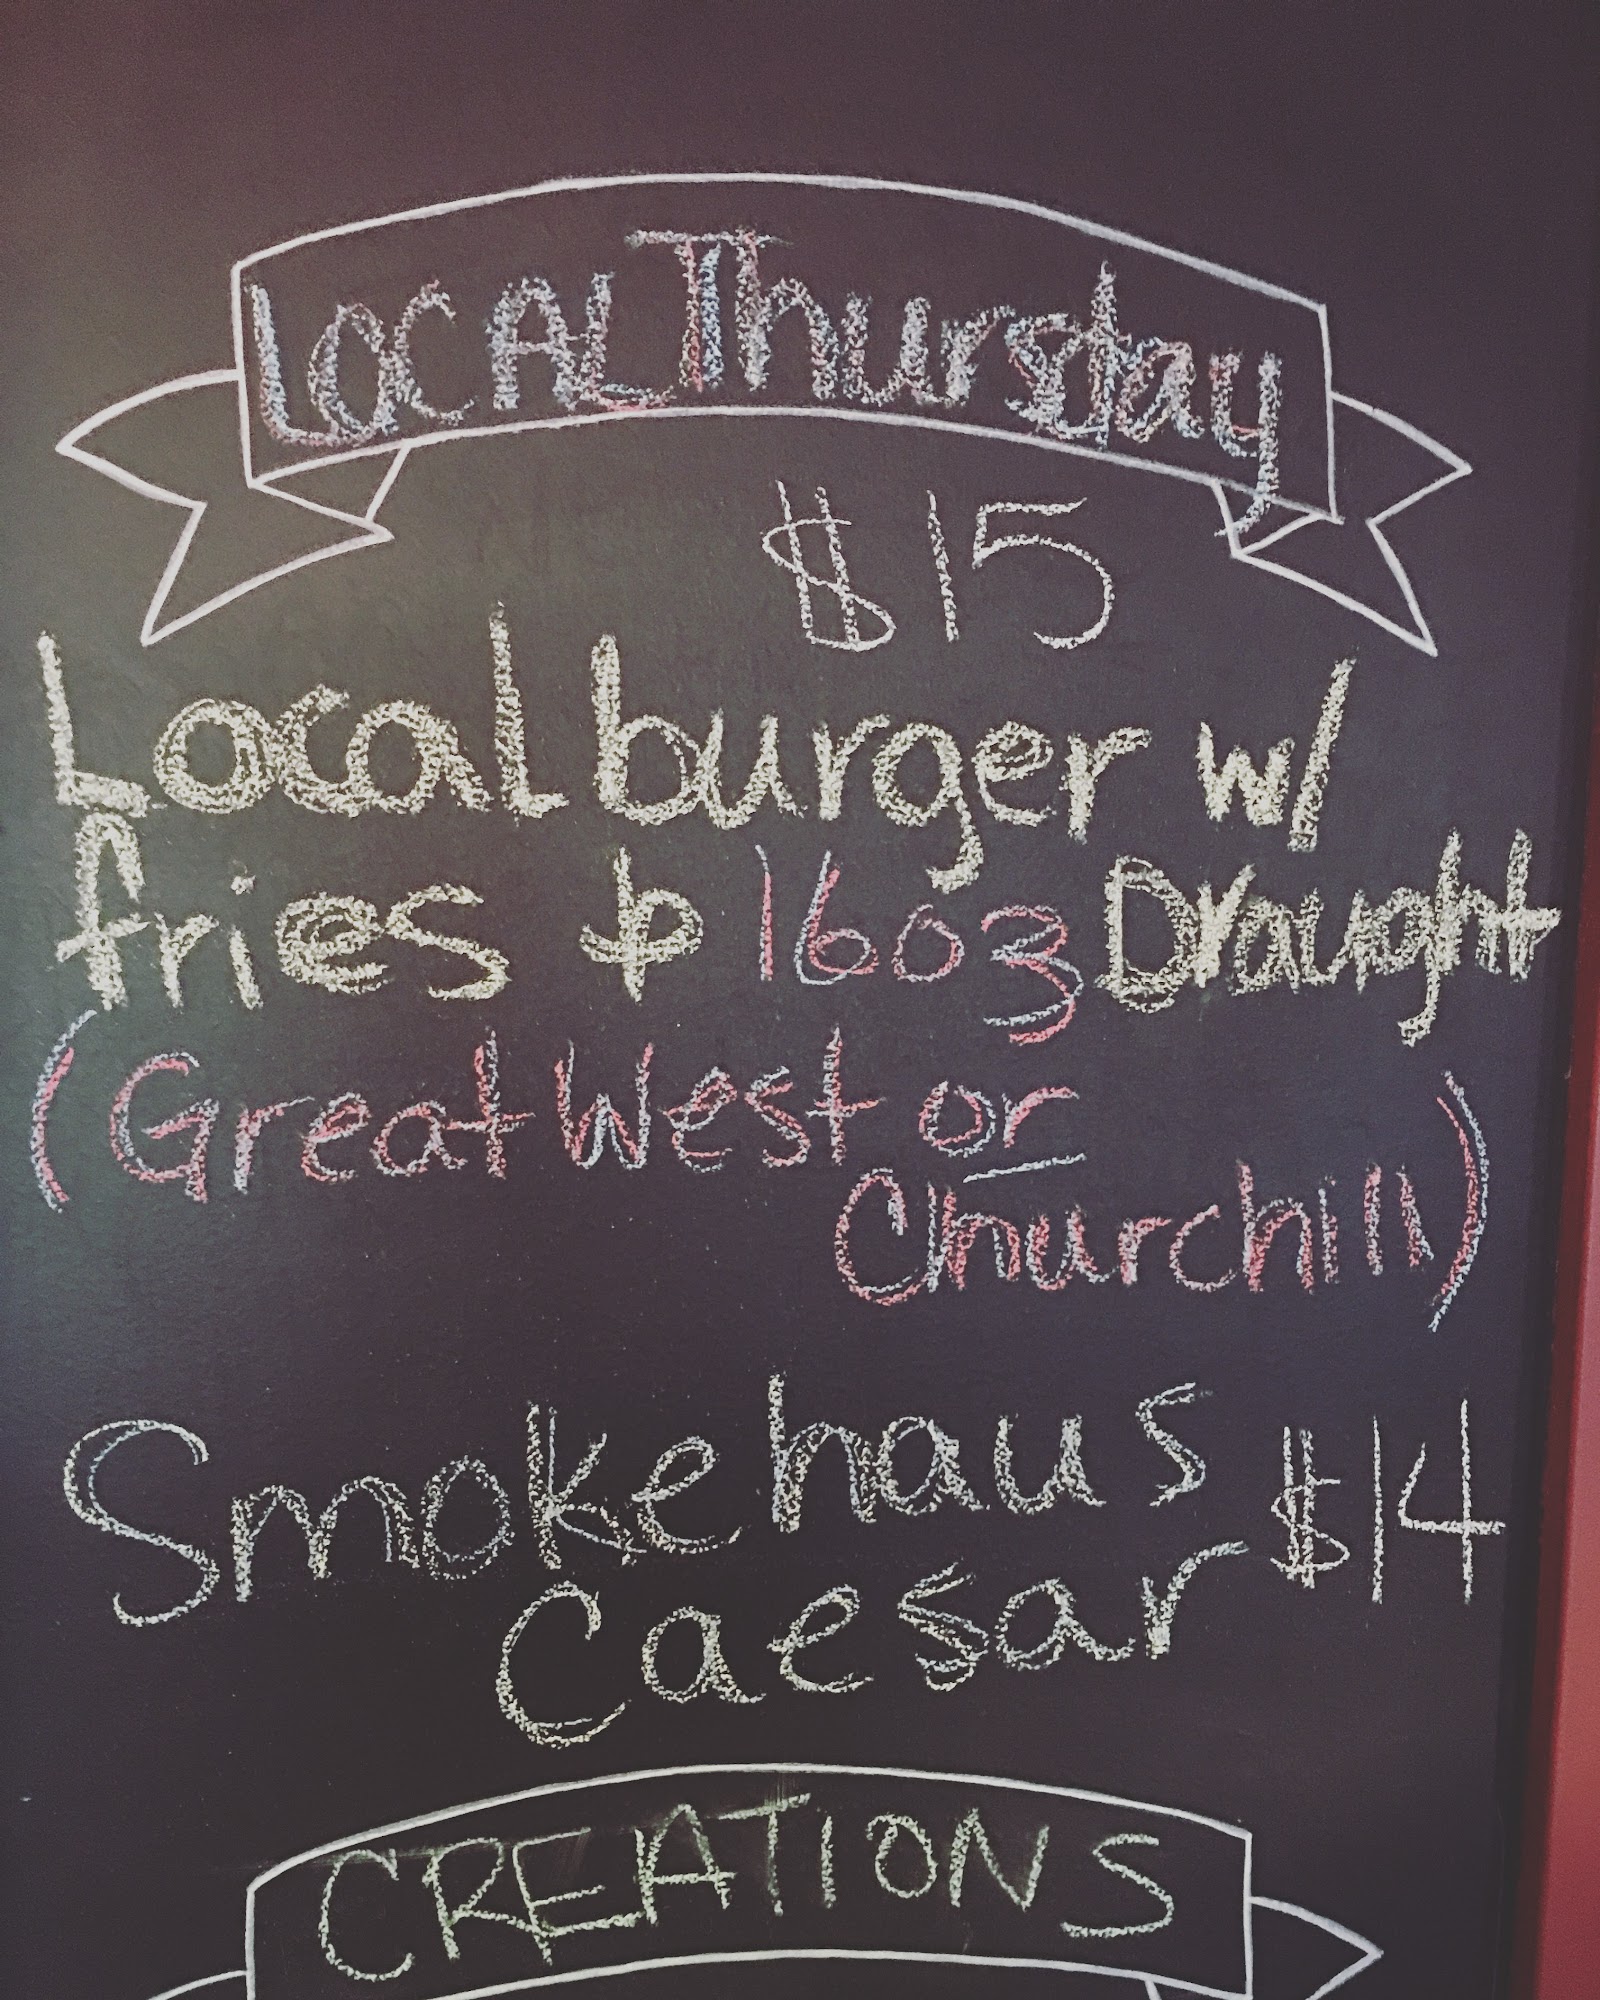 LOCAL Thursday
$15
Local burger w/
fries & 16oz Draught
(Great West or
Churchill)
Smokehaus $14
Caesar
CREATIONS